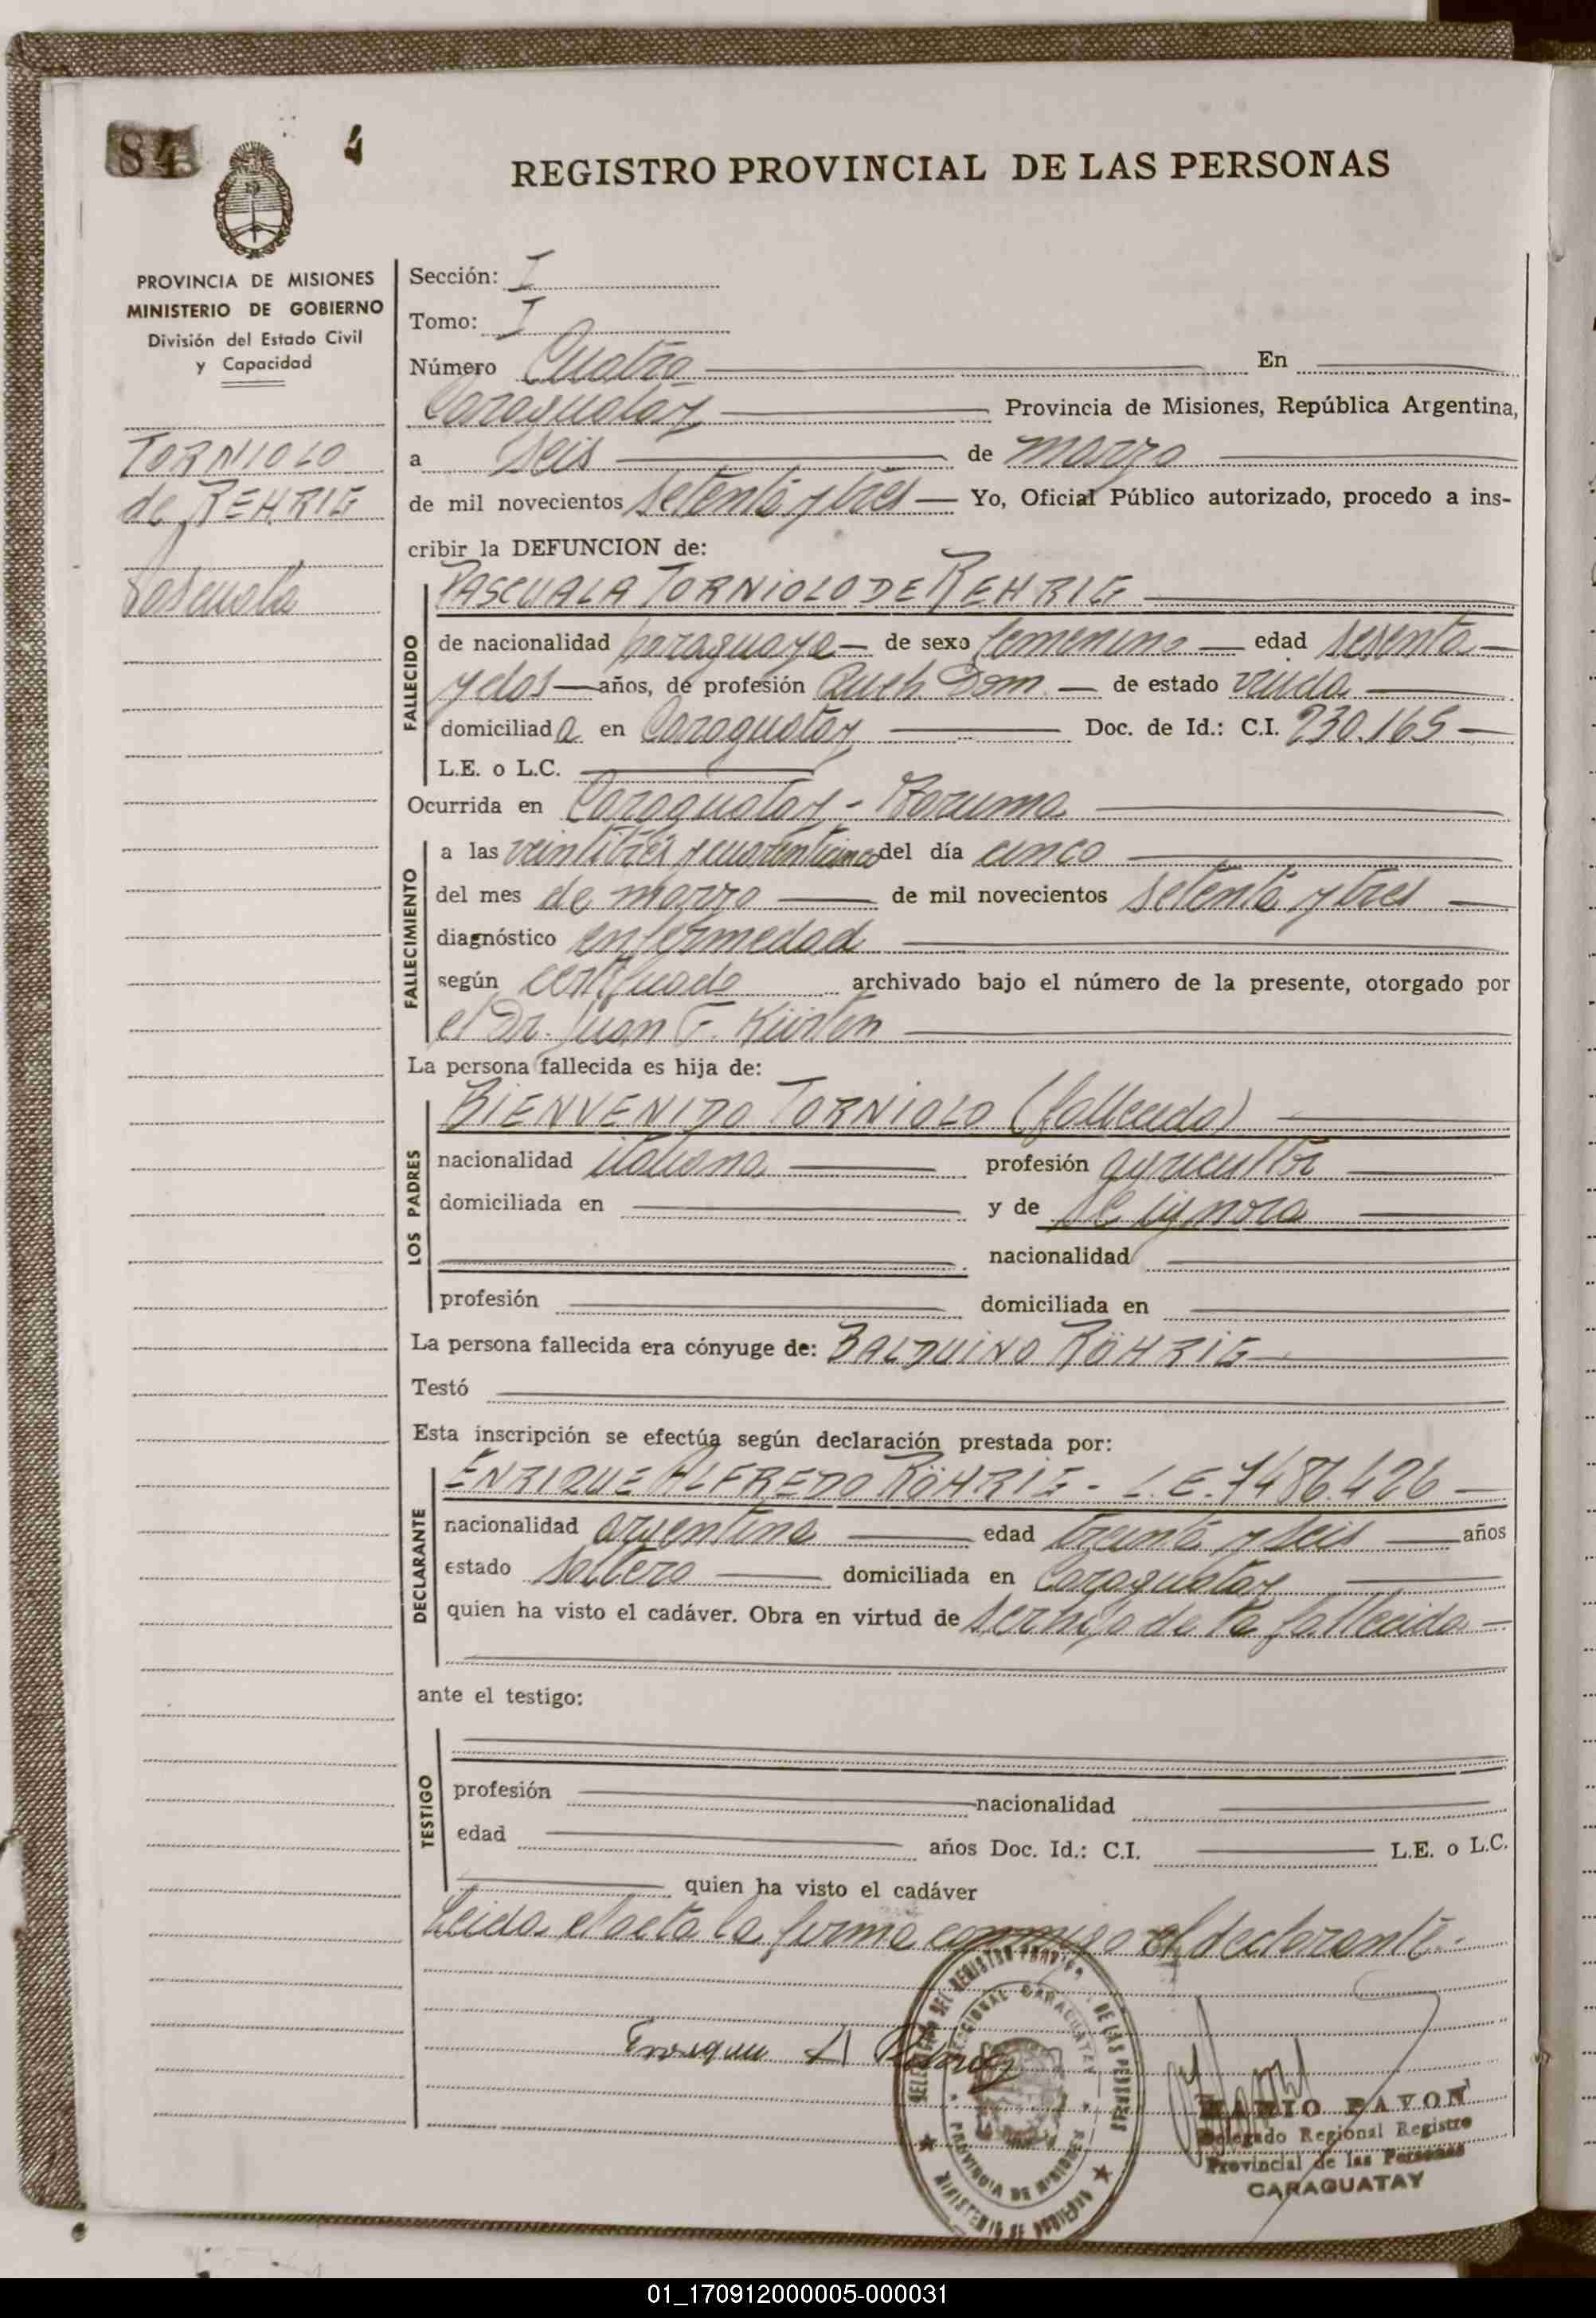 84
4
REGISTRO PROVINCIAL DE LAS PERSONAS
PROVINCIA DE MISIONES
MINISTERIO DE GOBIERNO
División del Estado Civil
y Capacidad
TORNIOLO
de REHRIG
Pascuala
Sección: I
Tomo: I
Número Cuatro En
Caraguatay Provincia de Misiones, República Argentina,
a seis de marzo
de mil novecientos setenta y tres Yo, Oficial Público autorizado, procedo a ins-
cribir la DEFUNCION de:
FALLECIDO
PASCUALA TORNIOLO DE REHRIG
de nacionalidad paraguaya de sexo femenino edad sesenta
y dos años, de profesión Queh. Dom. de estado viuda
domiciliada en Caraguatay Doc. de Id.: C.I. 230.165
L.E. o L.C.
Ocurrida en Caraguatay -
FALLECIMIENTO
a las veintitrés y cuarenticinco del día cinco
del mes de marzo de mil novecientos setenta y tres
diagnóstico enfermedad
según certificado archivado bajo el número de la presente, otorgado por
el Dr. Juan F. Kürten
La persona fallecida es hija de:
LOS PADRES
BIENVENIDO TORNIOLO (fallecido)
nacionalidad italiana profesión agricultor
domiciliada en y de Se ignora
nacionalidad
profesión domiciliada en
La persona fallecida era cónyuge de: BALDUINO RÖHRIG
Testó
Esta inscripción se efectúa según declaración prestada por:
DECLARANTE
ENRIQUE ALFREDO RÖHRIG - L.E. 7486.426
nacionalidad argentina edad treinta y seis años
estado soltero domiciliada en Caraguatay
quien ha visto el cadáver. Obra en virtud de ser hijo de la fallecida
ante el testigo:
TESTIGO
profesión nacionalidad
edad años Doc. Id.: C.I. L.E. o L.C.
quien ha visto el cadáver
Leida el acta la firma conmigo el declarante.
Enrique A Röhrig
DEL REGISTRO DE LAS PERSONAS
CARAGUATAY
PROVINCIA DE MISIONES
MINISTERIO DE GOBIERNO
MARIO PAVON
Delegado Regional Registro
Provincial de las Personas
CARAGUATAY
01_170912000005-000031